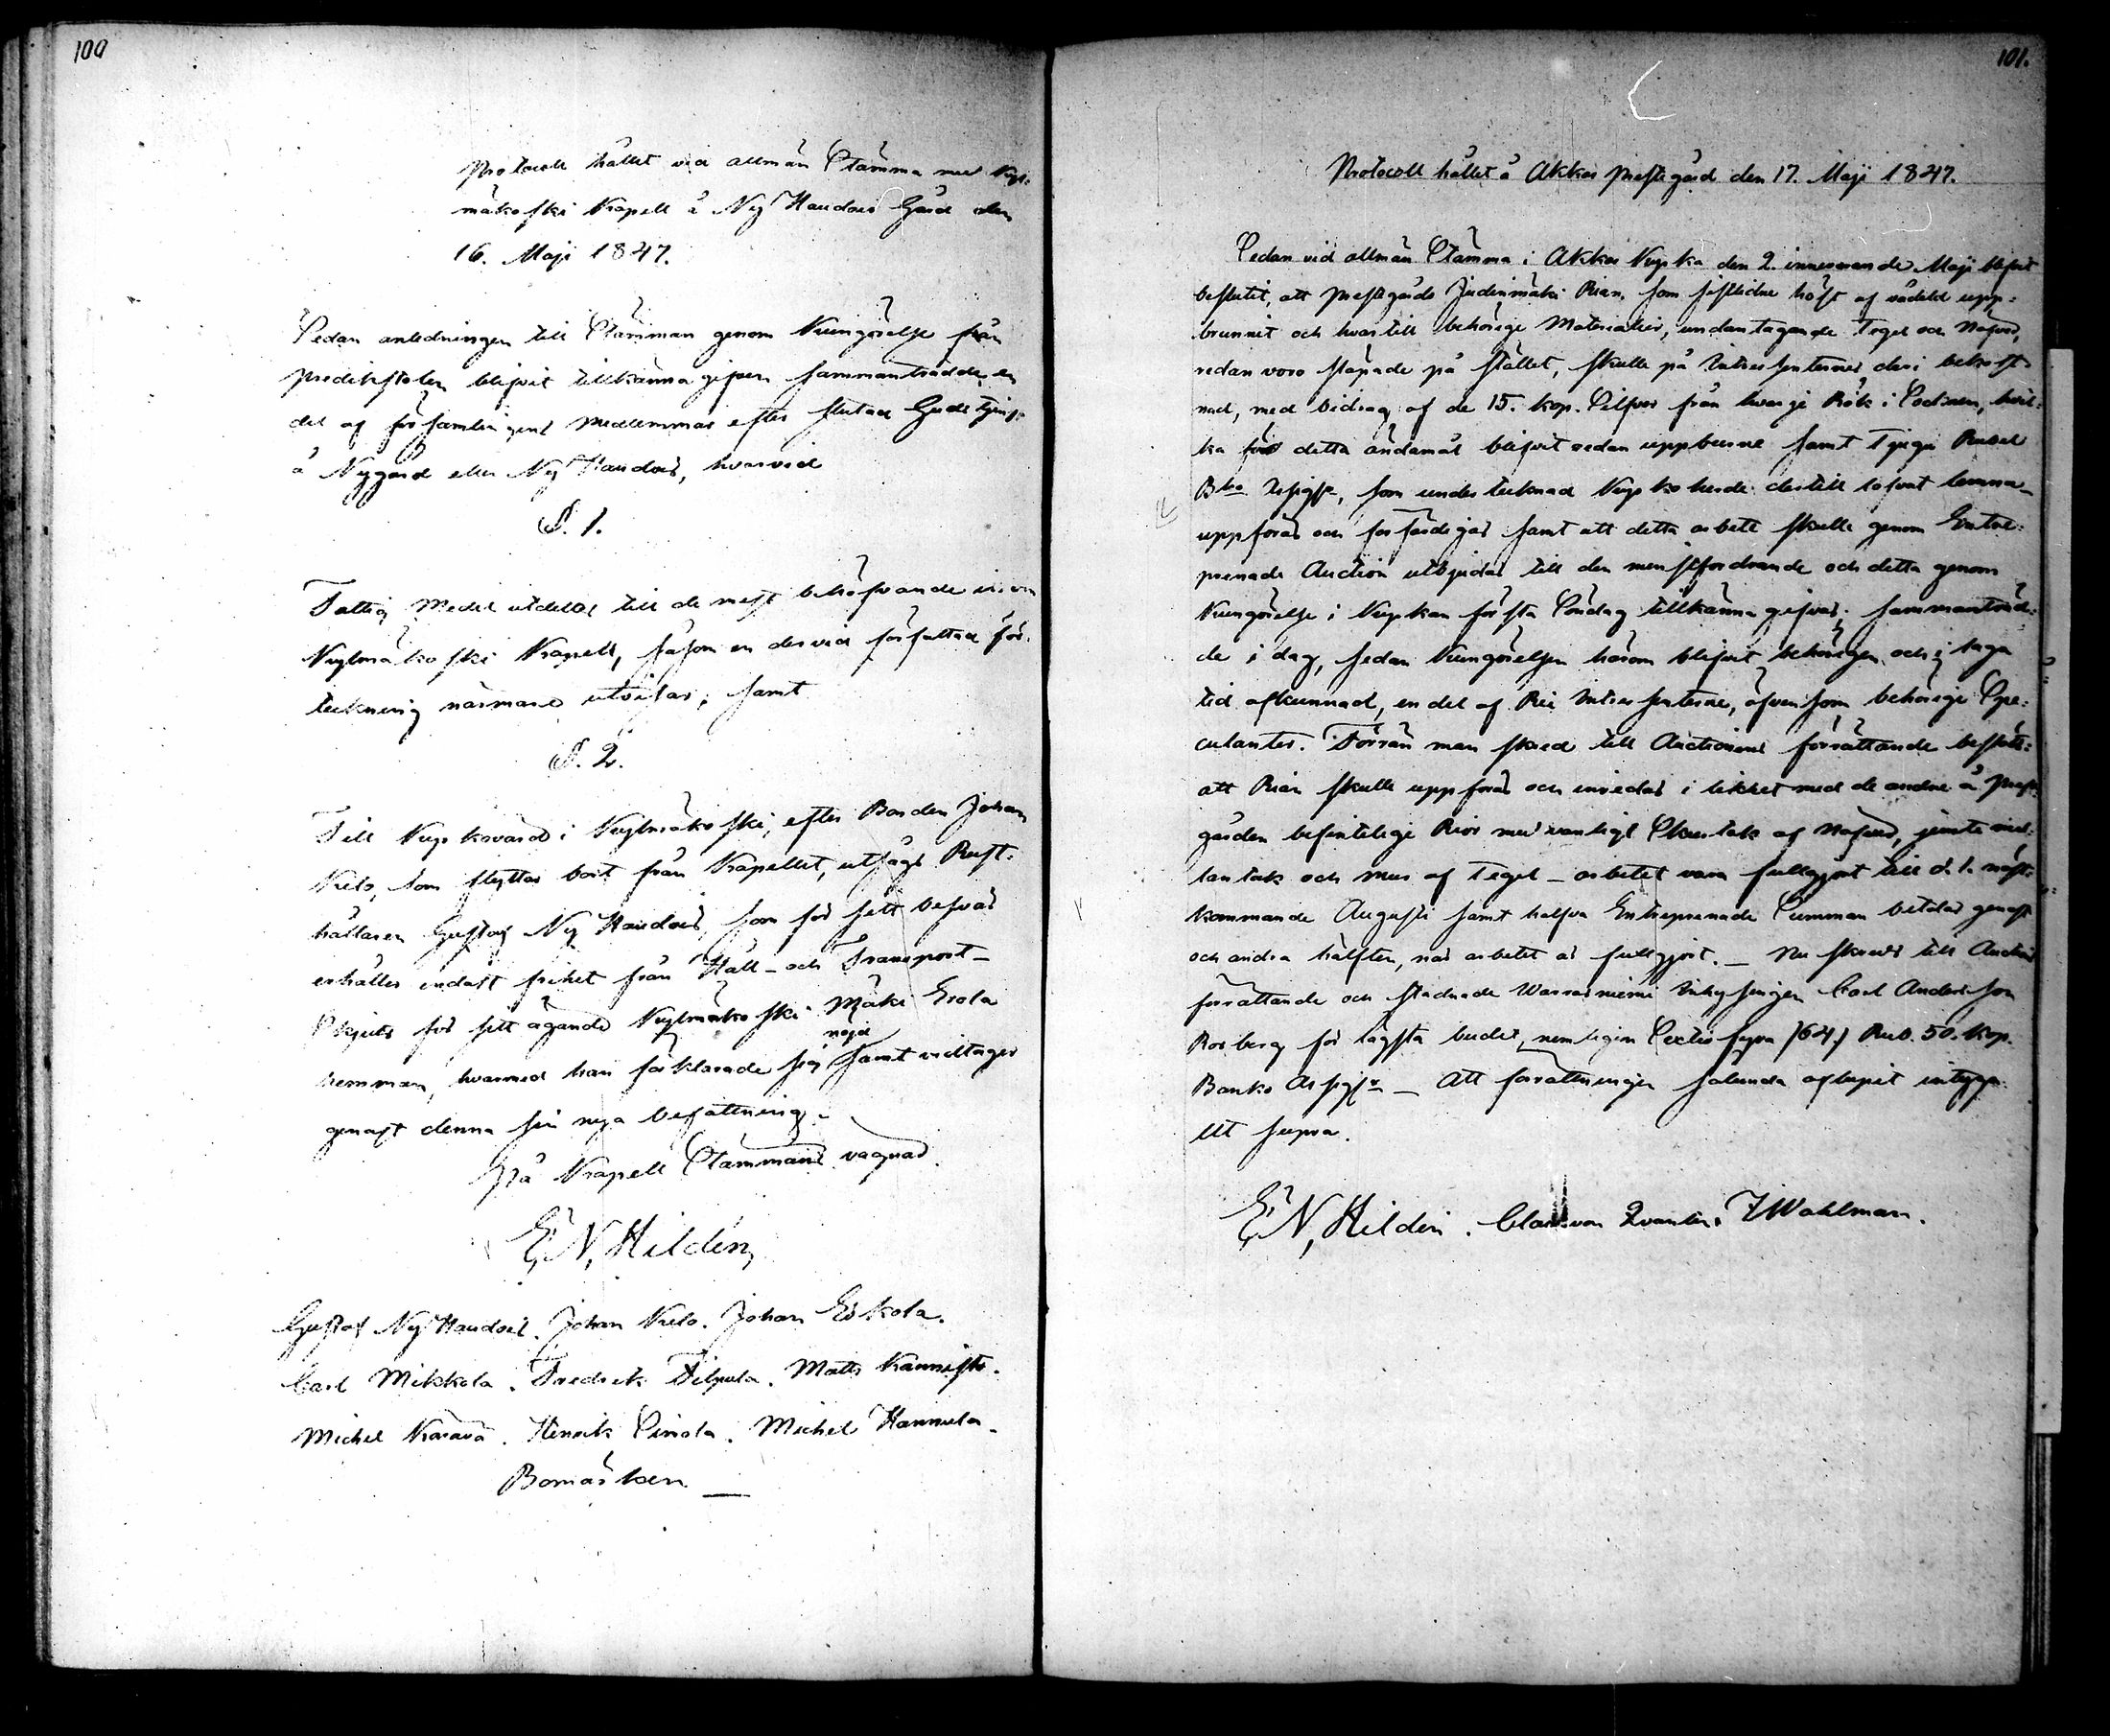 100
Protocoll hållet vid allmän Stämma med Kyl-
mäkoski Kapell å Ny Haudois Gård den
16. Maji 1847.
Sedan anledningen till Stämman genom Kungörelse från
predikstolen blifvit tillkänna gifven sammanträdde en
del af församlingens medlemmar efter slutad Gudstjenst
å Nygård eller Ny Haudois, hvarvid
§. 1.
Fattig Medel utdeltes till de mest behöfvande inom
Kylmäkoski Kapell, såsom en dervid författad för-
teckning närmare utvisar; samt
§. 2.
Till Kyrkovärd i Kylmäkoski, efter Bonden Johan
Kulo, som flyttar bort från Kapellet, utsågs Rust-
hållaren Gustaf Ny Haudois, som för sitt besvär
erhåller endast frihet från Håll- och Transport-
Skjuts för sitt ägande Kylmäkoski Mäki Erola
hemman, hvarmed han förklarade sig nöjd samt vidtager
genast denna sin nya befattning.
På Kapell Stämmans vägnar.
E. N. Hildén,
Gustaf Ny Haudois. Johan Kulo. Johan Eskola.
Carl Mikkola. Fredrik Tilpula. Matts Kannisto.
Michel Kärävä. Henrik Sirola. Michel Hannula.
Bomärken.
101.
Protocoll hållet å Akkas prestgård den 17. Maji 1847.
Sedan vid allmän Stämma i Akkas Kyrka den 2. innevarande Maji blifvit
beslutit, att prestgårds Judinmäki Rian, som sistlidne höst af vådeld upp-
brunnit och hvartill behörige Materialier, undantagande Tegel och Näfver,
redan voro släpade på stället, skulle på Intressenternes deri bekost-
nad, med bidrag af de 15. kop. Silfver från hvarje Rök i Socknen, hvil-
ka för detta ändamål blifvit redan uppburne samt Tjugu Rubel
Bko Assign, som undertecknad Kyrkoherde dertill lofvat lemna
uppföras och förfärdigas samt att detta arbete skulle genom Entre-
prenade Auction utbjudas till den minstfordrande och detta genom
Kungörelse i Kyrkan första Söndag tillkänna gifvas; sammanträd-
de i dag, sedan Kungörelsen härom blifvit behörigen och i laga
tid afkunnad, en del af Rii Intressenterne, äfvensom behörige Spe-
culanter. Förrän man skred till Auctionens förrättande beslöts:
att Rian skulle uppföras och inredas i likhet med de andre å prest-
gården befintelige Rior med vanligt Skurtak af Näfver, jemte mel-
lantak och mur af Tegel - arbetet vara fullgjort till d. 1. näst-
kommande Augusti samt halfva Entreprenade Summan betalas genast
och andra hälften, när arbetet är fullgjort. - Nu skreds till Auctions
förrättande och stadnade Warrasniemi Inhysingen Carl Andersson
Rosberg för lägsta budet, nemligen Sextio fyra /64./ Rub. 50. kop.
Banko Assign - Att förrättningen sålunda aflupit intyga
Ut supra.
E N, Hildén. Clas von Qvanten. J Wahlman.